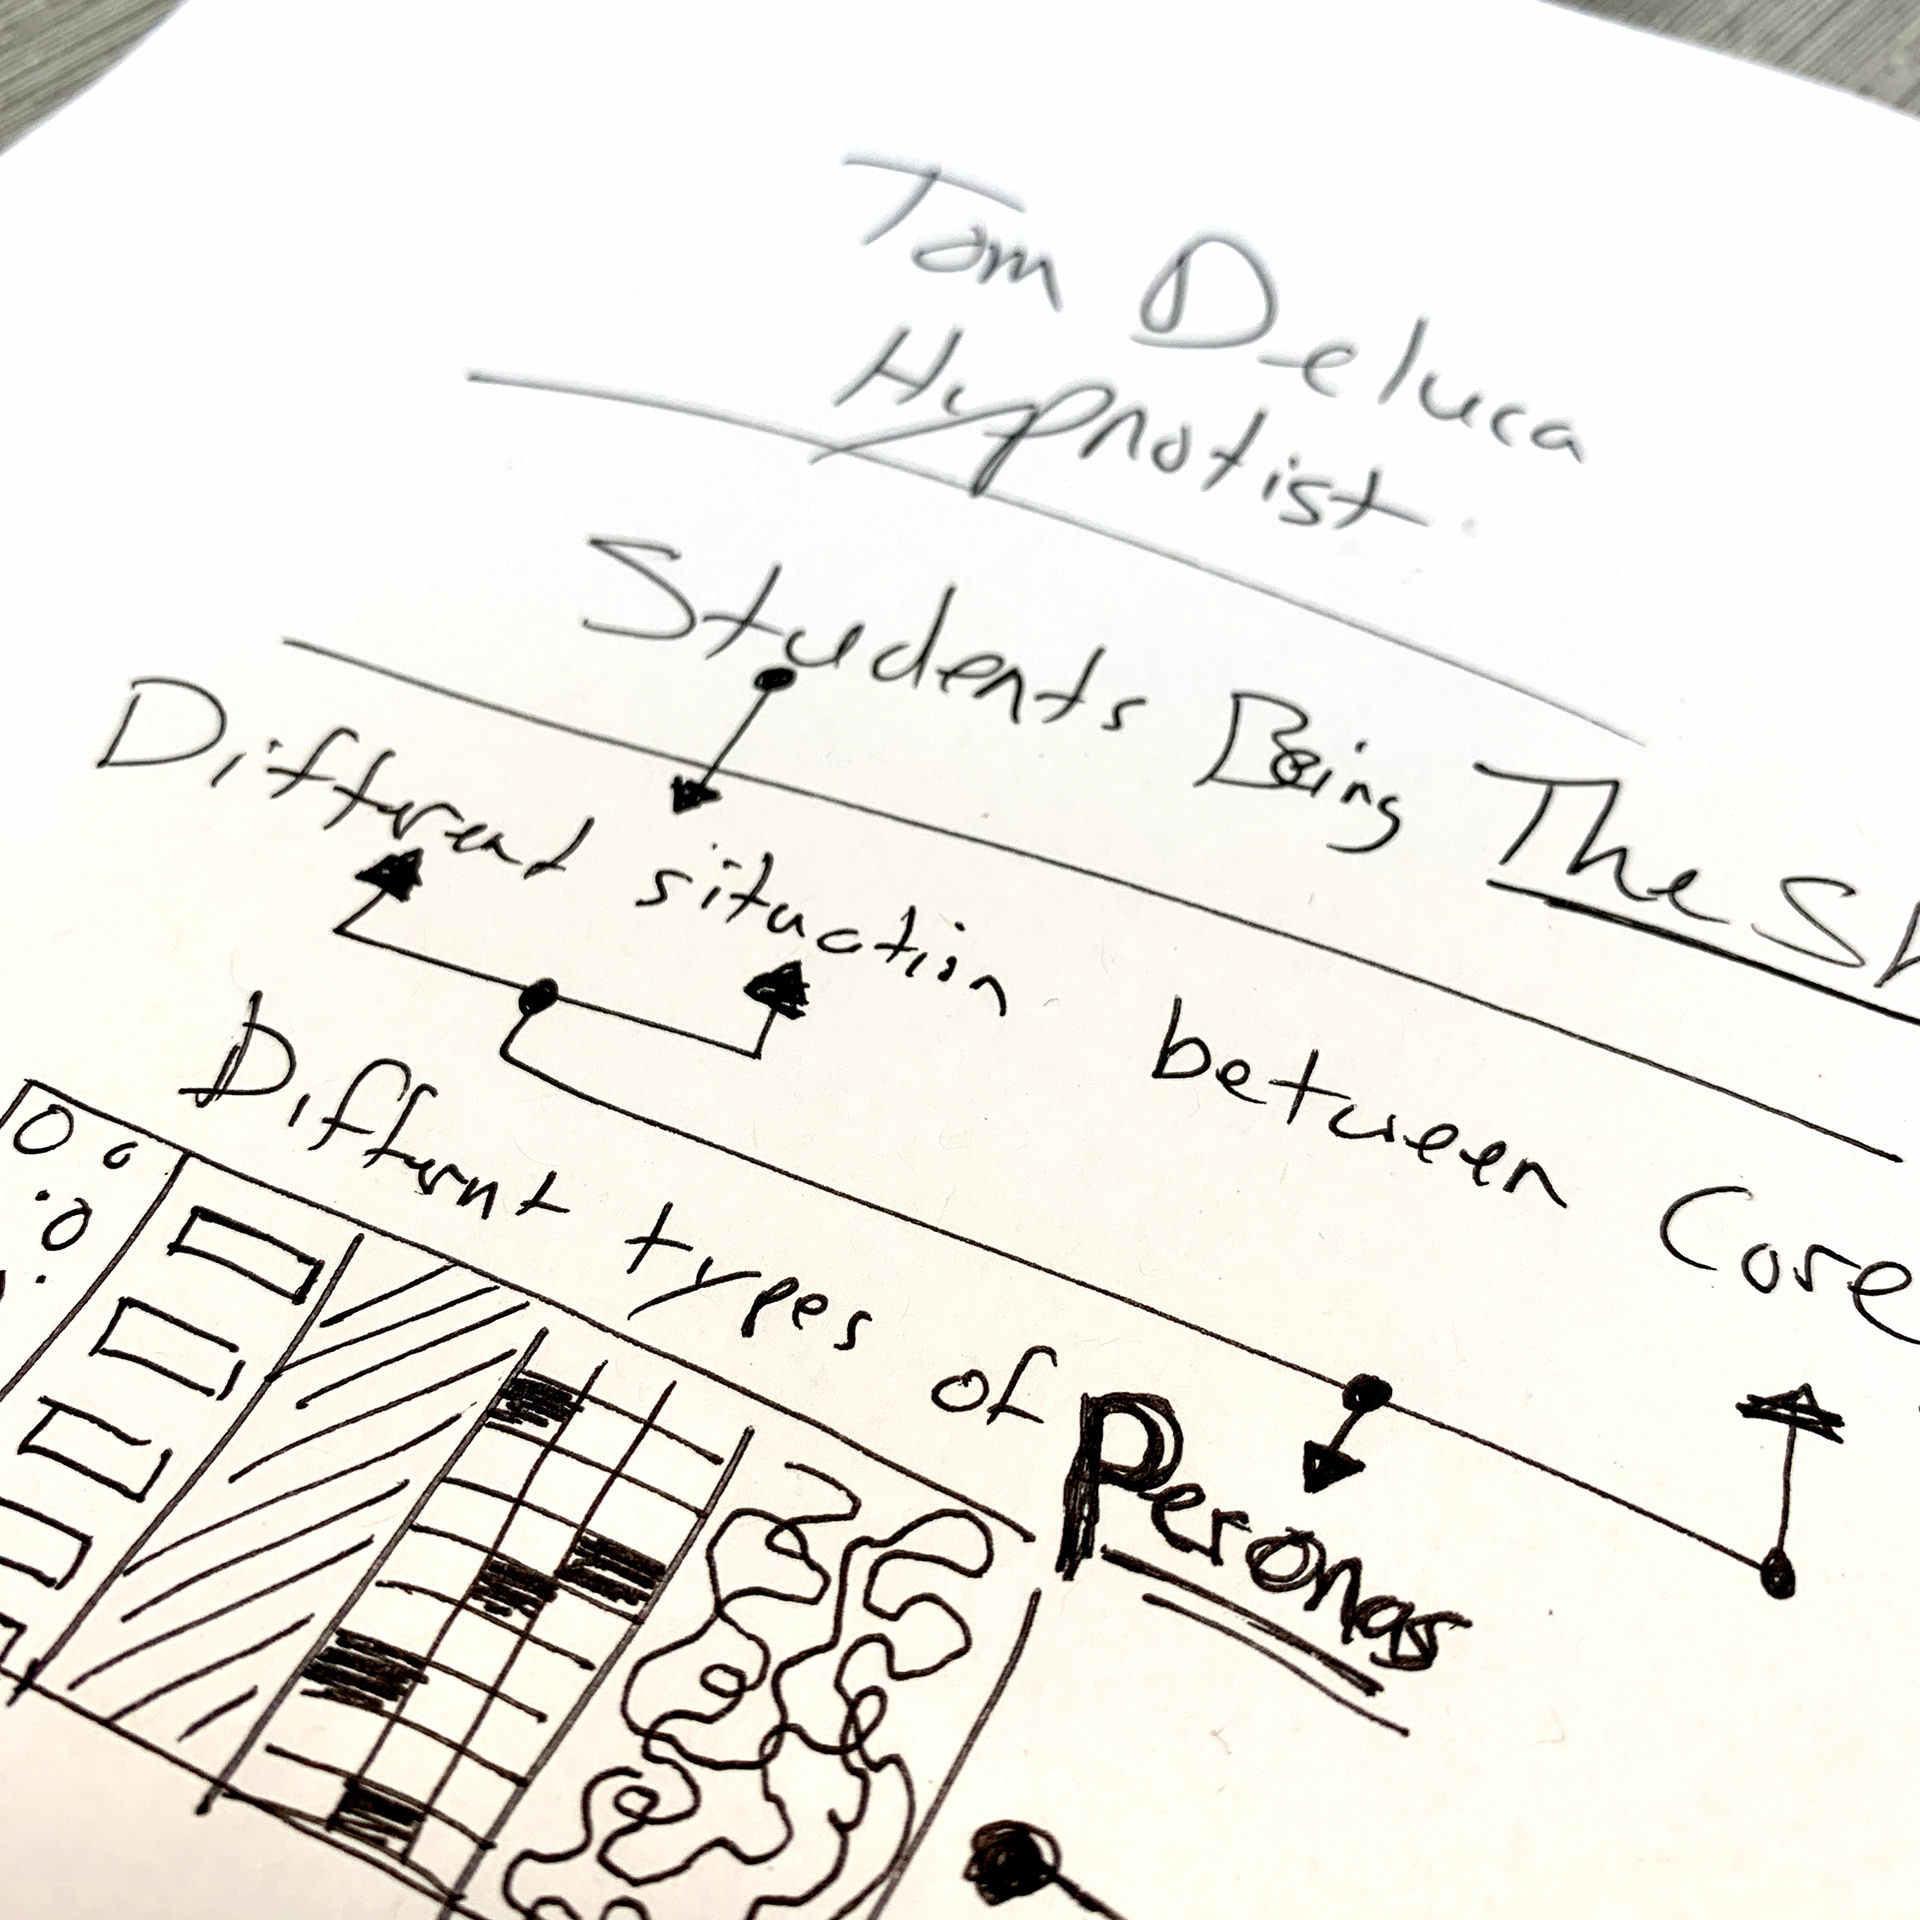 Tom Deluca
Hypnotist.
Students Being The
Different situation between Core
Differnt types of Personas